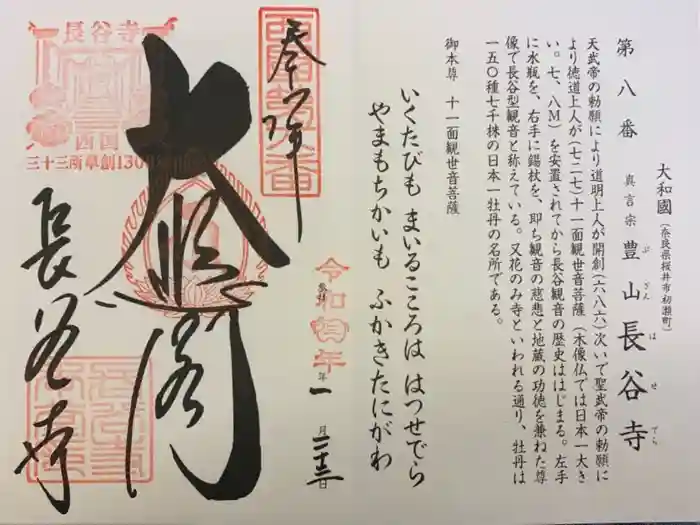 第八番
大和國(奈良県桜井市初瀬町)
真言宗 豊山 長谷寺
ぶざん はせでら
天武帝の勅願により道明上人が開創(六八六)次いで聖武帝の勅願に
より徳道上人が(七二七)十一面観世音菩薩(木像仏では日本一大き
い。七、八M)を安置されてから長谷観音の歴史ははじまる。左手
に水瓶を、右手に錫杖を、即ち観音の慈悲と地蔵の功徳を兼ねた尊
像で長谷型観音と称えている。又花のみ寺といわれる通り、牡丹は
一五〇種七千株の日本一牡丹の名所である。
御本尊 十一面観世音菩薩
いくたびも まいるこころは はつせでら
やまもちかいも ふかきたにがわ
令和四年
年一月二十三日
奉拝
大悲閣
長谷寺
長谷寺
西国
三十三所草創130